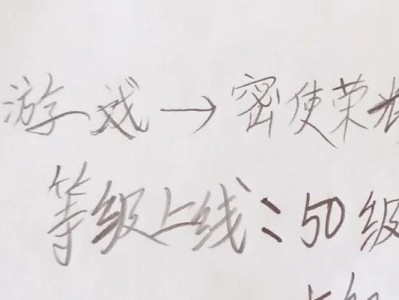 游戏→密使荣
等级上线：50级